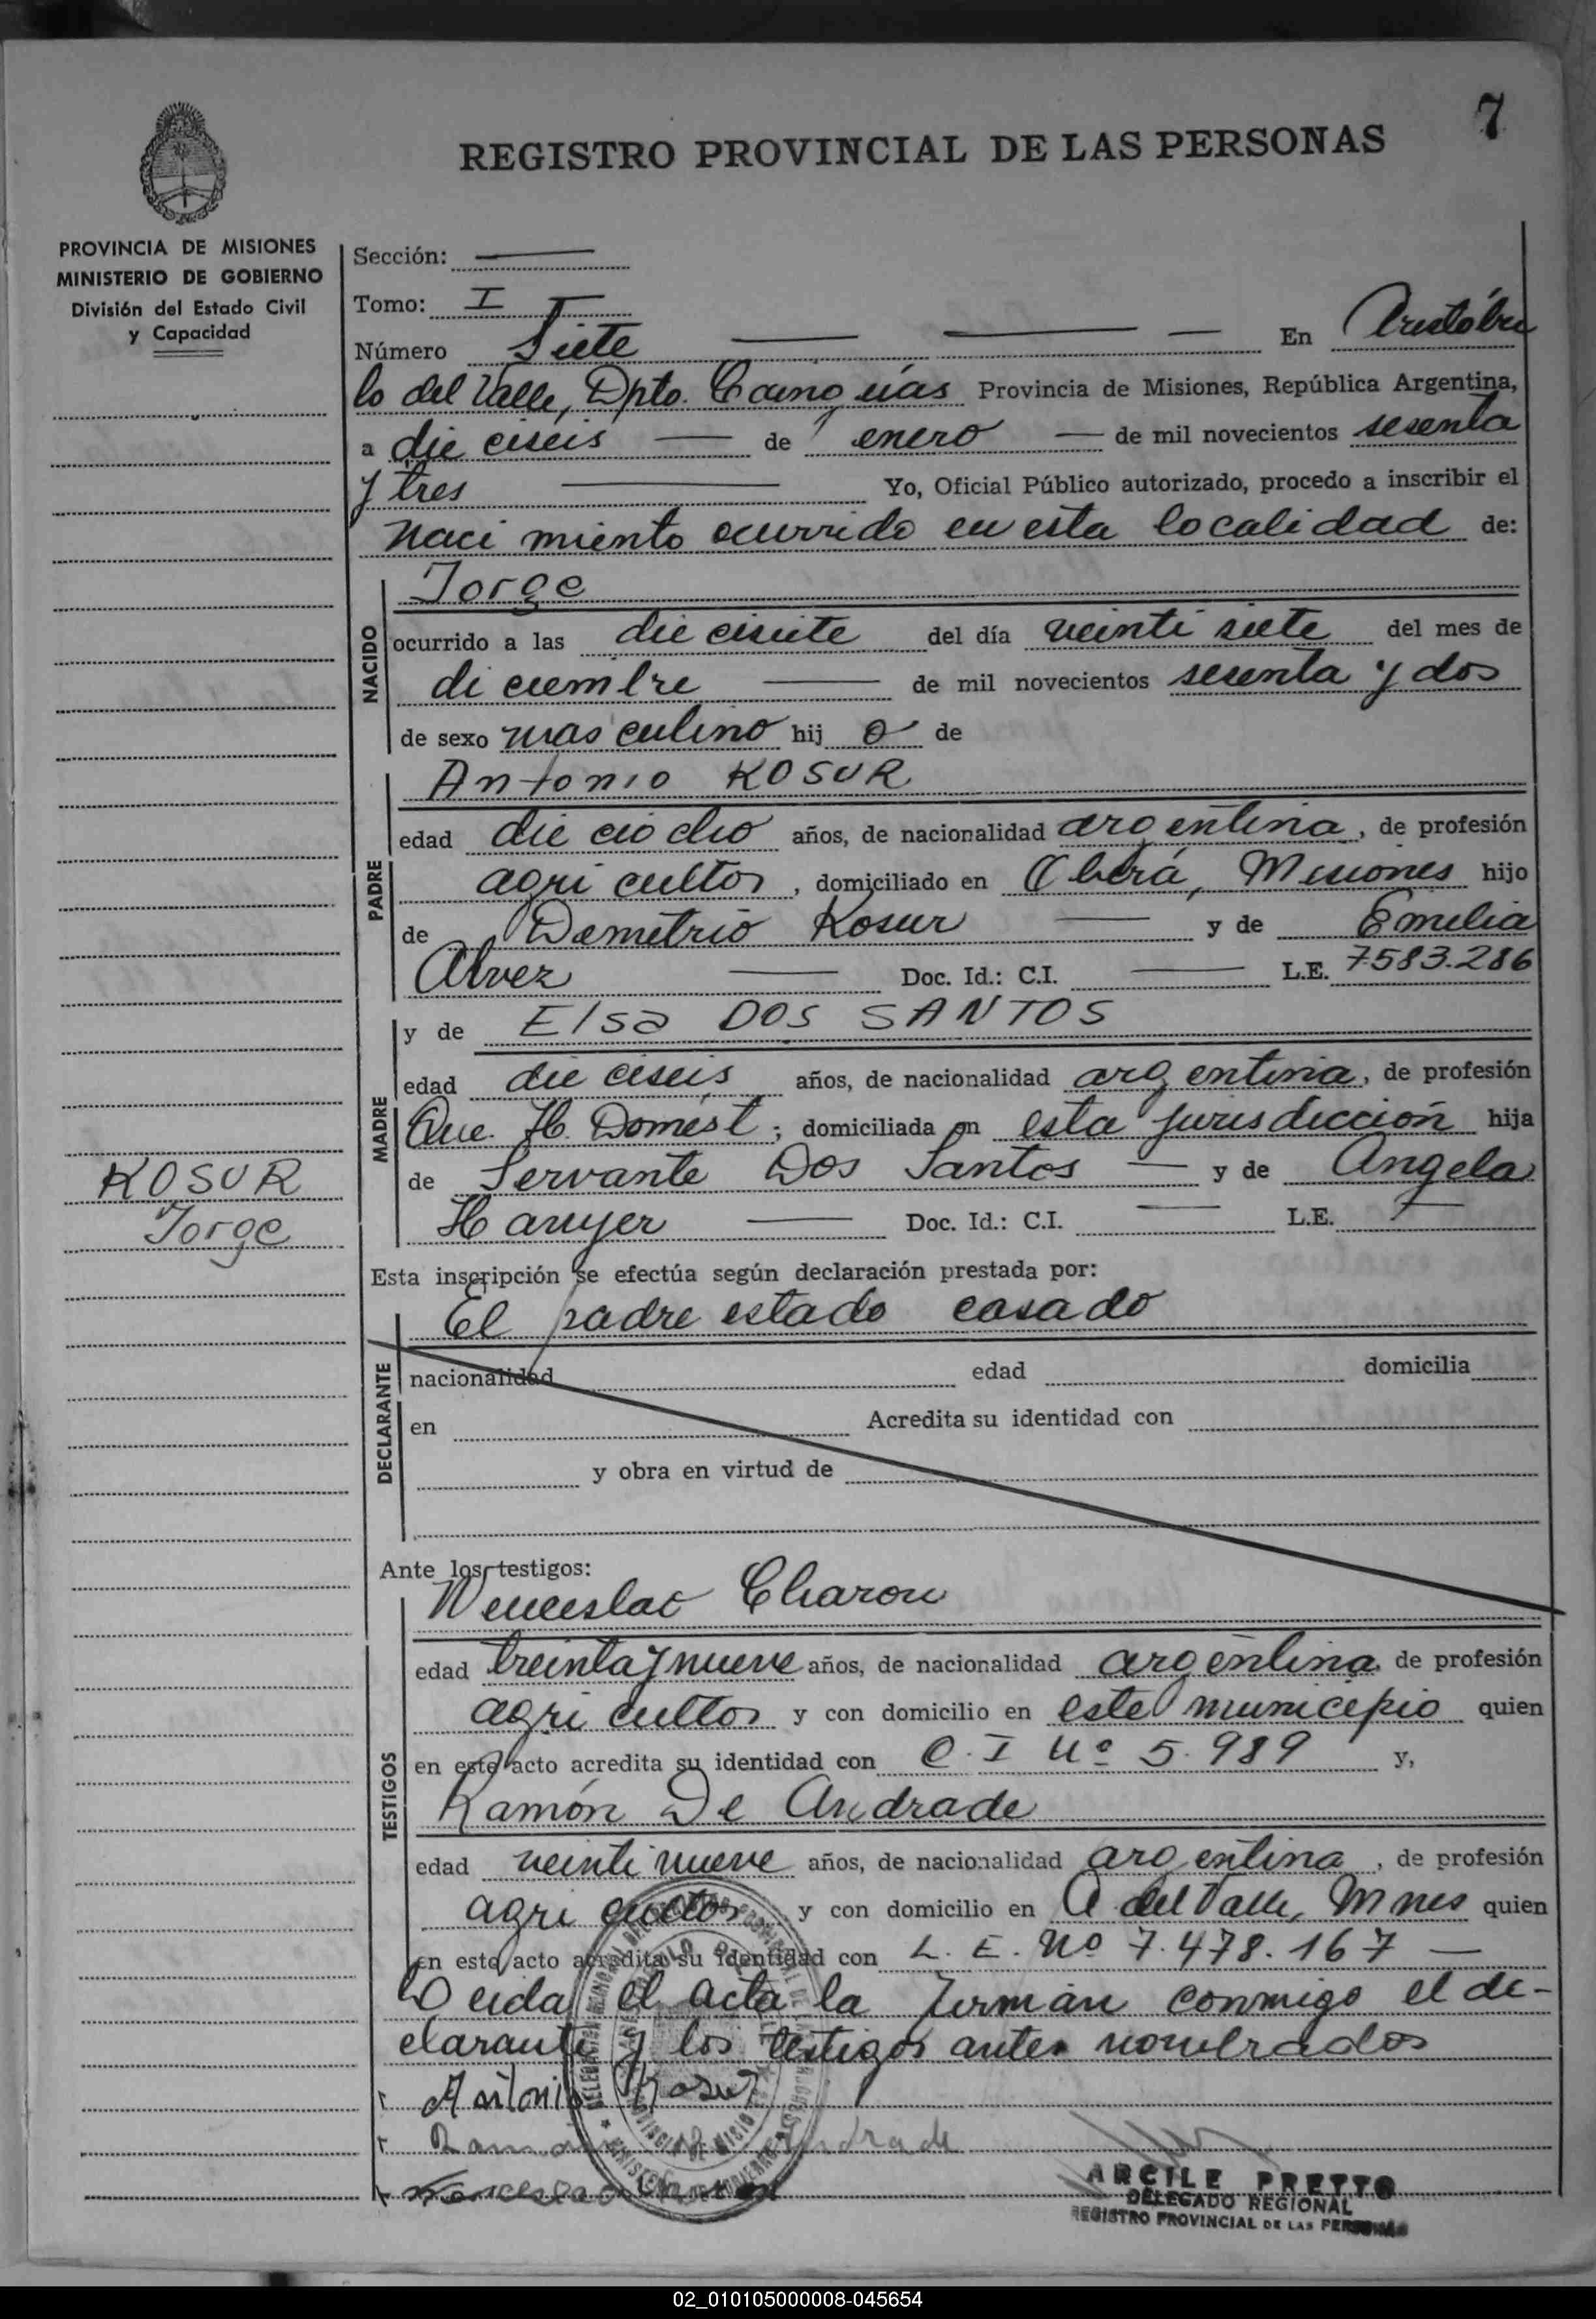 7
REGISTRO PROVINCIAL DE LAS PERSONAS
PROVINCIA DE MISIONES
MINISTERIO DE GOBIERNO
División del Estado Civil
y Capacidad
Sección:
Tomo: I
Número Siete En Aristóbu
lo del Valle, Dpto. Cainguás Provincia de Misiones, República Argentina,
a dieciseis de enero de mil novecientos sesenta
y tres Yo, Oficial Público autorizado, procedo a inscribir el
nacimiento ocurrido en esta localidad de:
NACIDO
Jorge
ocurrido a las diecisiete del día veintisiete del mes de
diciembre de mil novecientos sesenta y dos
de sexo masculino hijo de
PADRE
Antonio KOSUR
edad dieciocho años, de nacionalidad argentina, de profesión
agricultor, domiciliado en Oberá, Misiones hijo
de Demetrio Kosur y de Emelia
Alvez Doc. Id.: C.I. L.E. 7583.286
MADRE
y de Elsa DOS SANTOS
edad dieciseis años, de nacionalidad argentina, de profesión
Que. H. Domést; domiciliada en esta jurisdicción hija
de Servante Dos Santos y de Angela
Doc. Id.: C.I. L.E.
KOSUR
Jorge
Esta inscripción se efectúa según declaración prestada por:
DECLARANTE
El padre estado casado
nacionalidad edad domicilia
en Acredita su identidad con
y obra en virtud de
Ante los testigos:
TESTIGOS
Wenceslao Charon
edad treinta y nueve años, de nacionalidad argentina, de profesión
agricultor y con domicilio en este municipio quien
en este acto acredita su identidad con C.I Nº 5.989 y,
Ramón De Andrade
edad veintinueve años, de nacionalidad argentina, de profesión
agricultor y con domicilio en A. del Valle, Mnes quien
en este acto acredita su identidad con L.E. Nº 7.478.167
Leida el acta la firmán conmigo el de-
clarante y los testigos antes nombrados
Antonio Kosur
Ramón Andrade
ARCILE PRETTO
DELEGADO REGIONAL
REGISTRO PROVINCIAL DE LAS PERSONAS
02_010105000008-045654